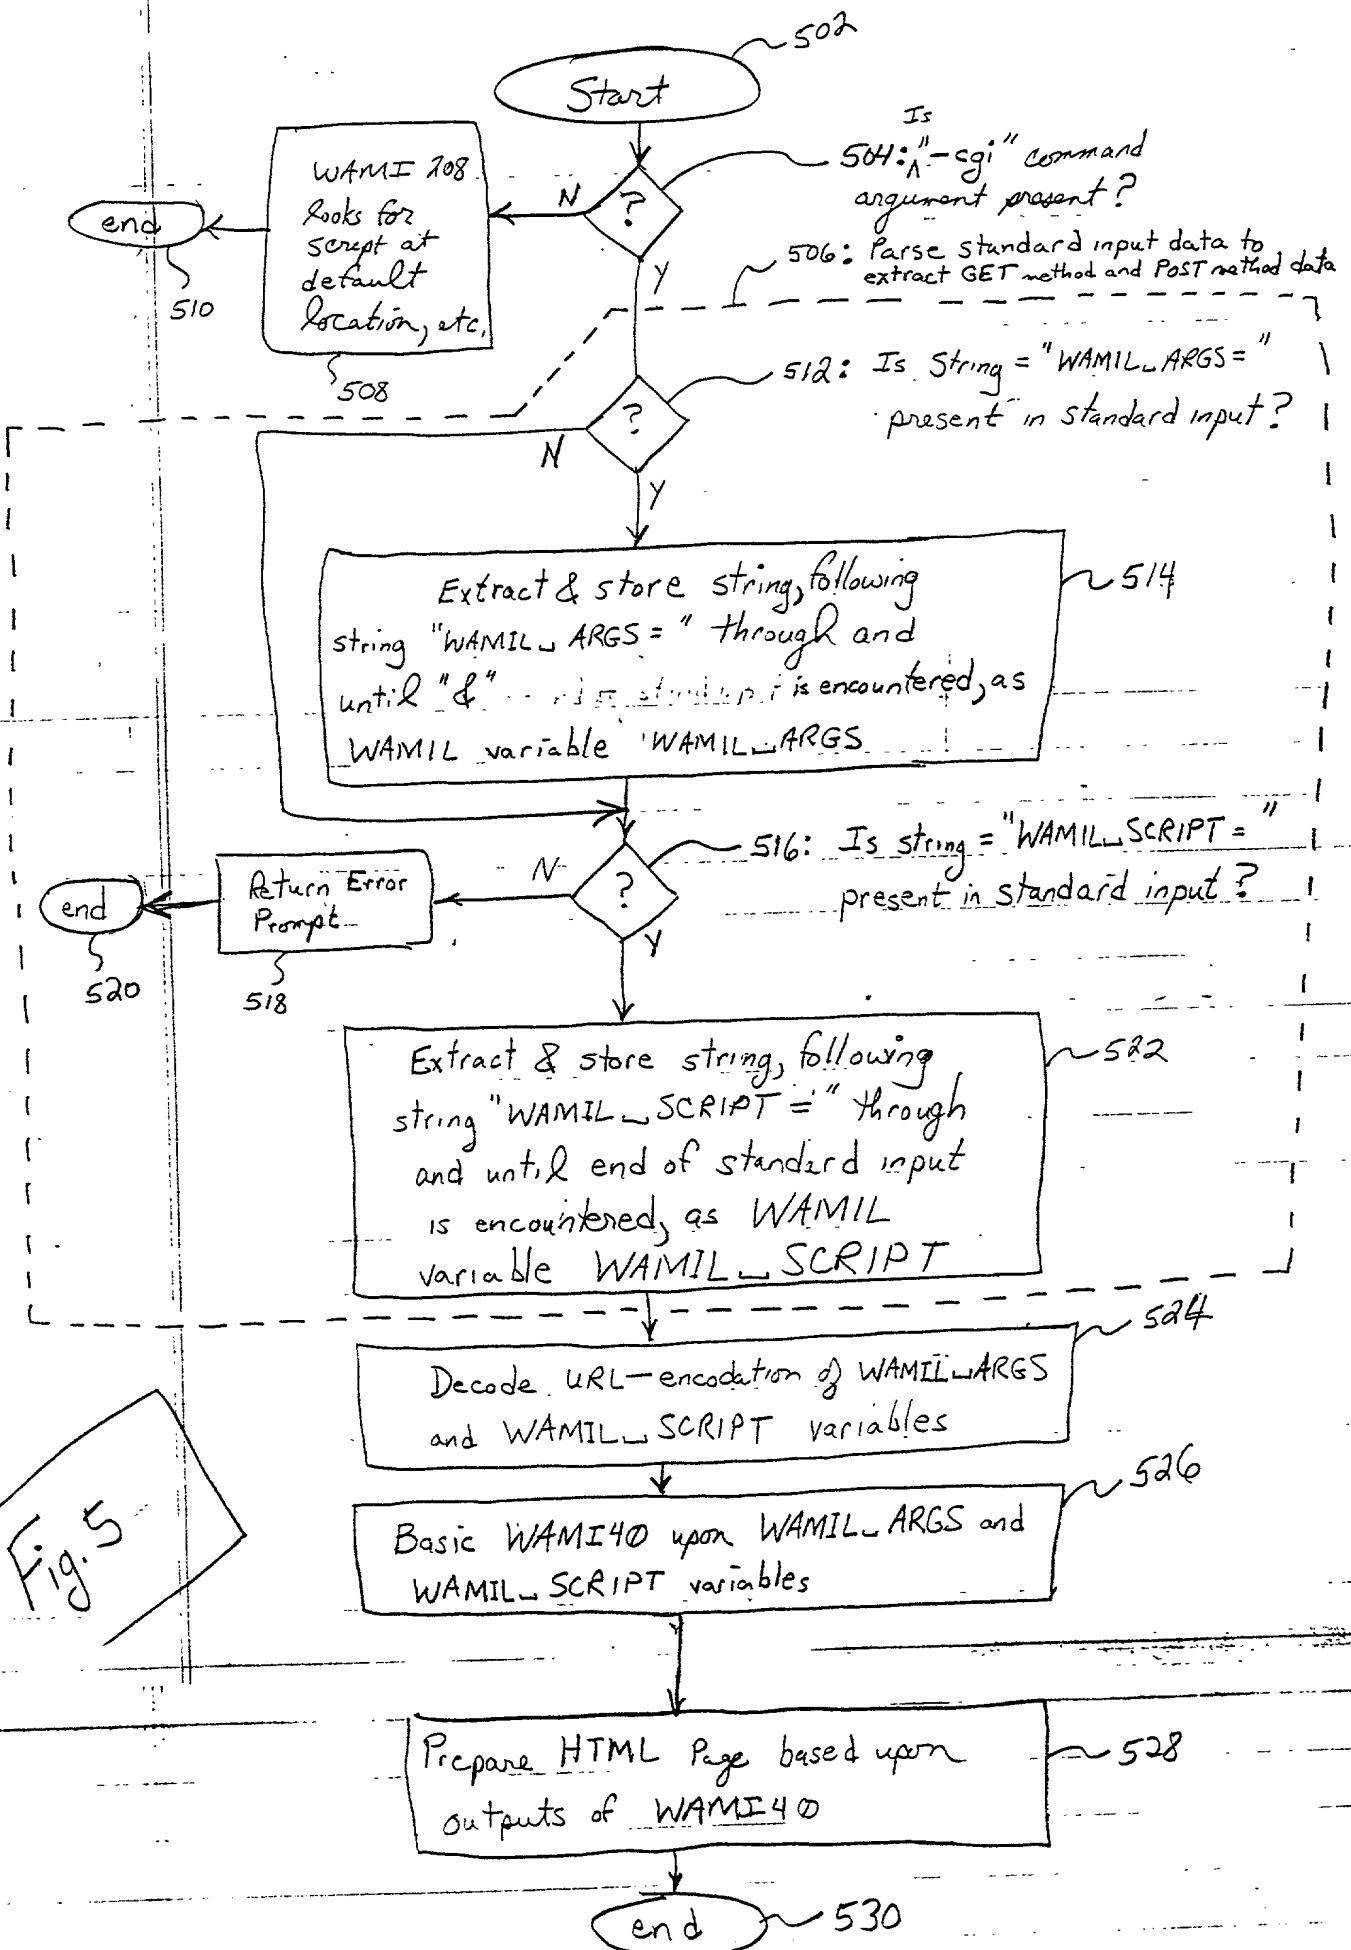 502
Start
Is
504: "-cgi" command
argument present?
506: Parse standard input data to
extract GET method and POST method data
WAMI 208
looks for
script at
default
location, etc.
N
?
Y
end
510
508
512: Is String = "WAMIL_ARGS="
present in standard input?
?
N
Y
Extract & store string, following
string "WAMIL_ARGS=" through and
until "&" is encountered, as
WAMIL variable WAMIL_ARGS
514
516: Is string = "WAMIL_SCRIPT="
present in standard input?
N
?
Y
Return Error
Prompt
end
520
518
Extract & store string, following
string "WAMIL_SCRIPT=" through
and until end of standard input
is encountered, as WAMIL
variable WAMIL_SCRIPT
522
524
Decode URL-encodation of WAMIL_ARGS
and WAMIL_SCRIPT variables
526
Basic WAMI40 upon WAMIL_ARGS and
WAMIL_SCRIPT variables
Fig. 5
Prepare HTML Page based upon
outputs of WAMI40
528
end
530